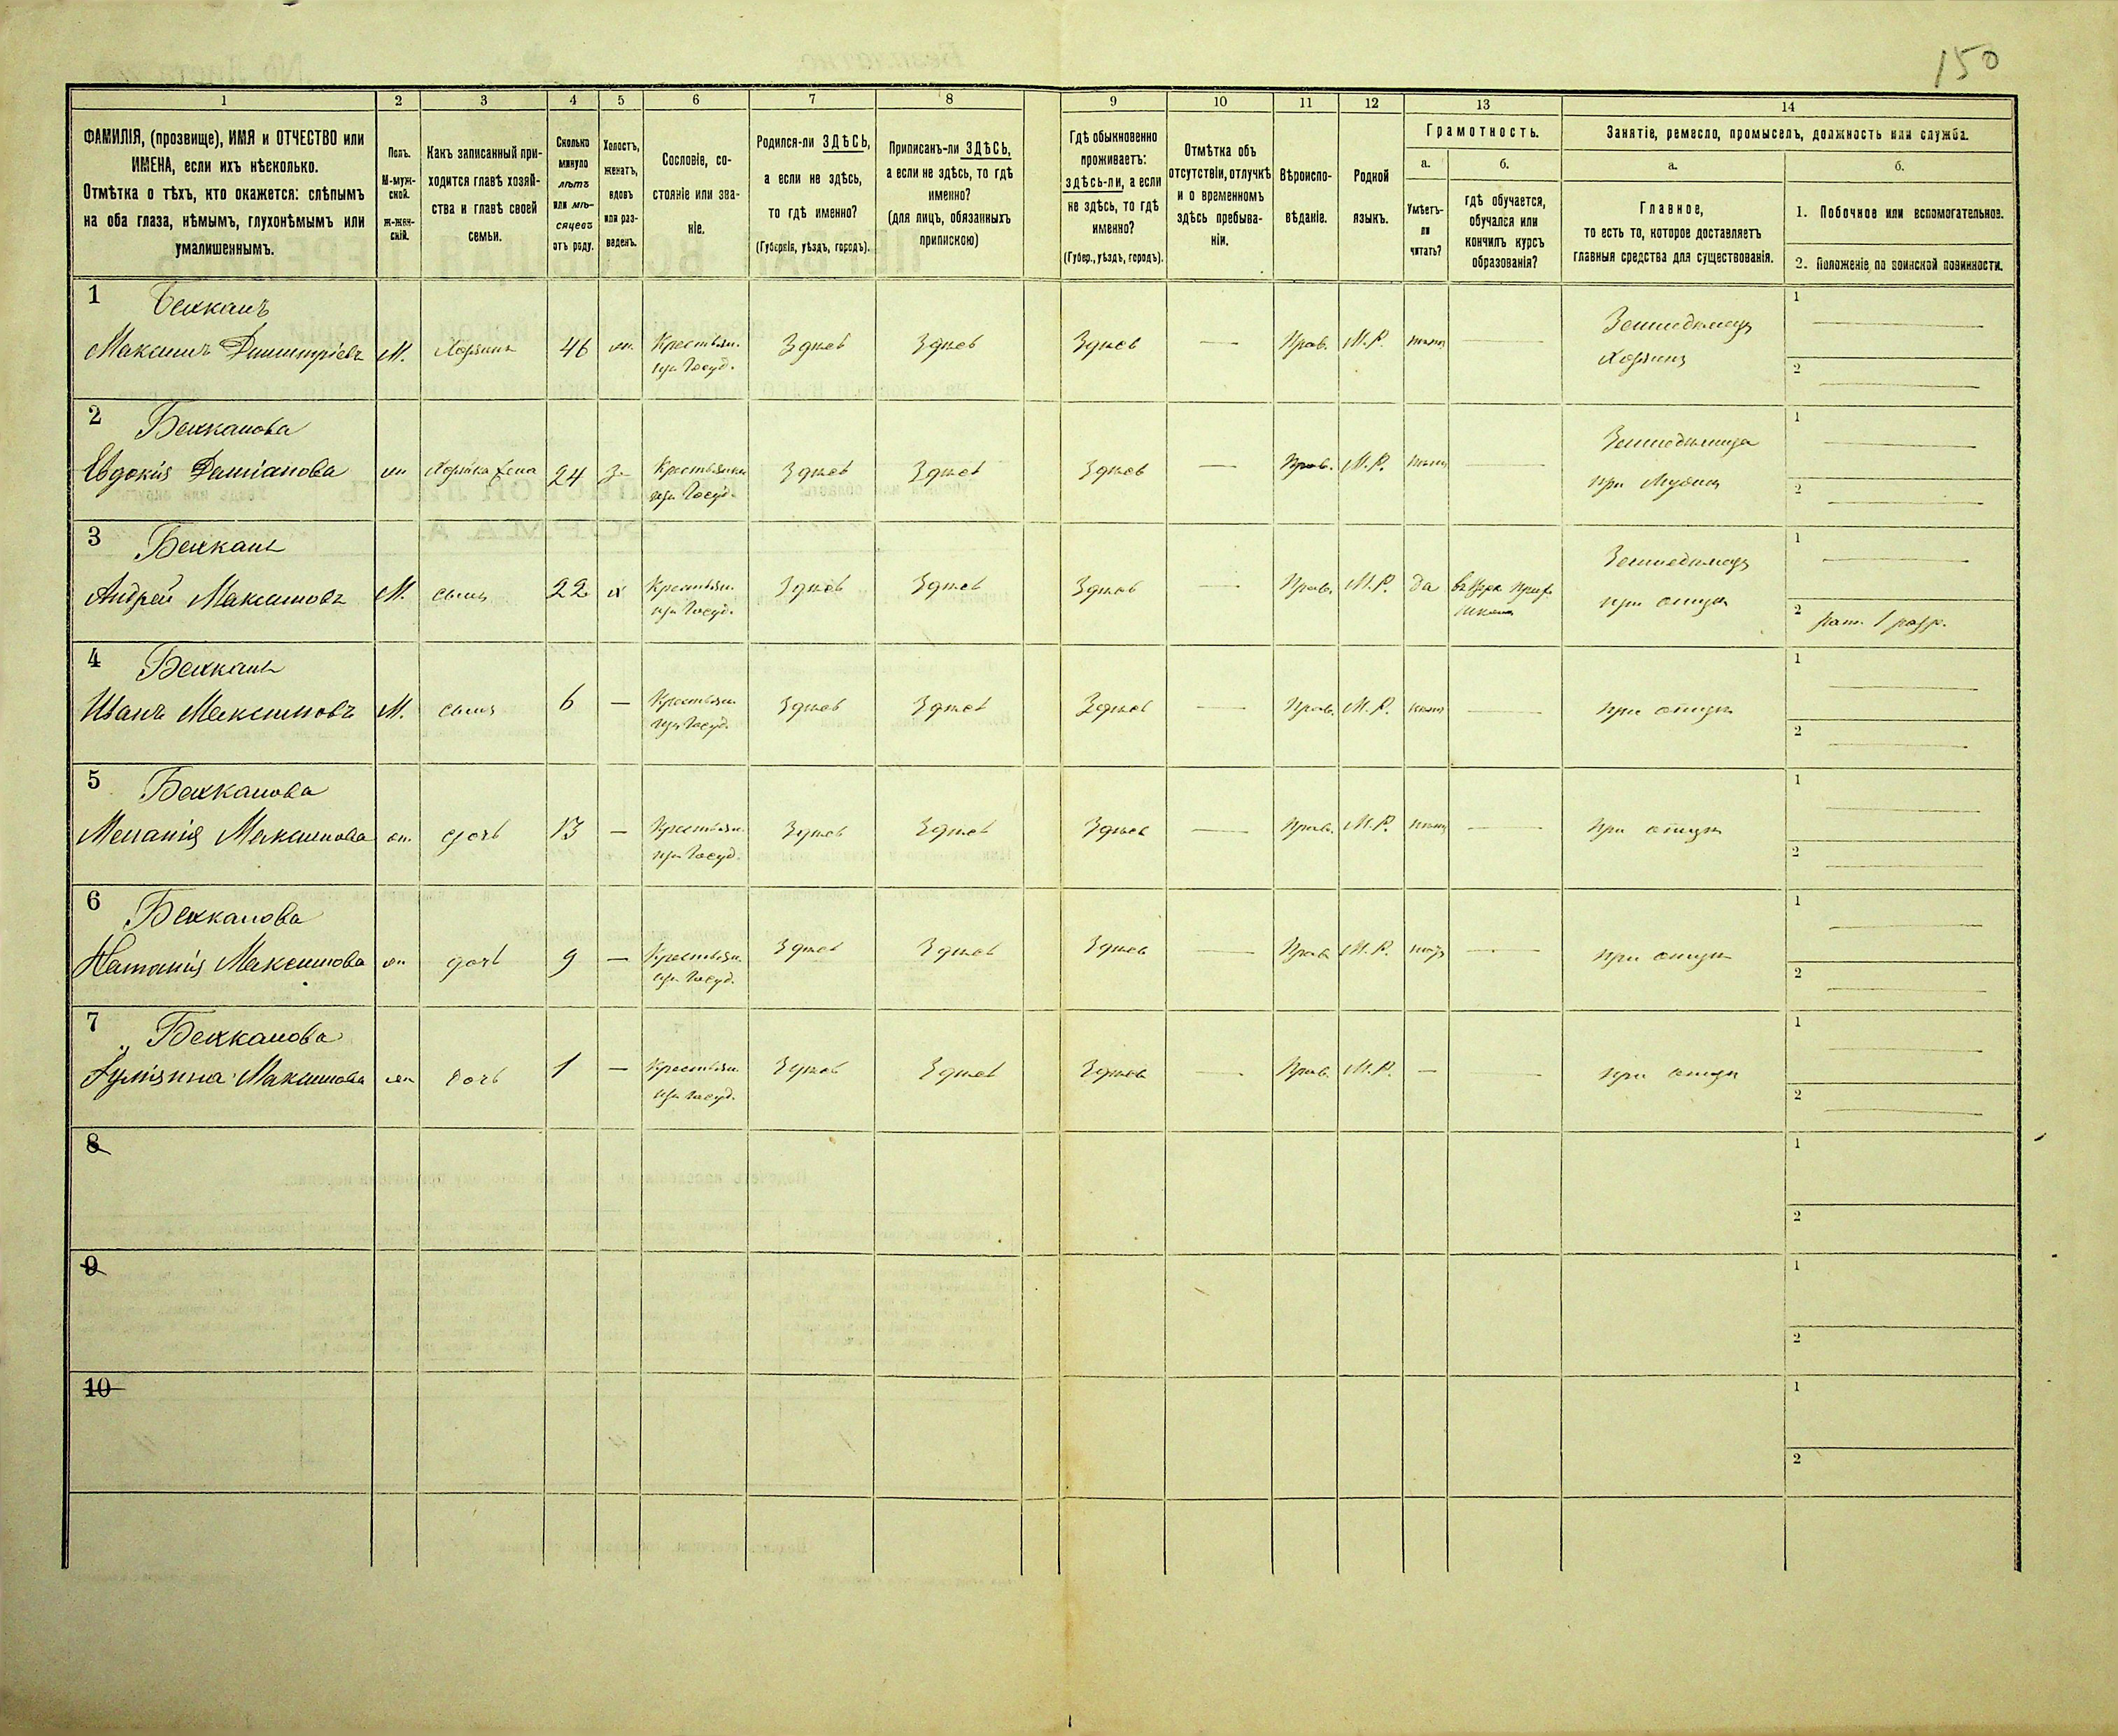 150
1 2 3 4 5 6 7 8 9 10 11 12 13 14
ФАМИЛІЯ, (прозвище), ИМЯ и ОТЧЕСТВО или
ИМЕНА, если ихъ нѣсколько.
Отмѣтка о тѣхъ, кто окажется: слѣпымъ
на оба глаза, нѣмымъ, глухонѣмымъ или
умалишеннымъ.
Полъ.
М-муж-
ской.
ж-жен-
скій.
Какъ записанный при-
ходится главѣ хозяй-
ства и главѣ своей
семьи.
Сколько
минуло
лѣтъ
или мѣ-
сяцевъ
отъ роду.
Холостъ,
женатъ,
вдовъ
или раз-
веденъ.
Сословіе, со-
стояніе или зва-
ніе.
Родился-ли ЗДѢСЬ,
а если не здѣсь,
то гдѣ именно?
(Губернія, уѣздъ, городъ).
Приписанъ-ли ЗДѢСЬ,
а если не здѣсь, то гдѣ
именно?
(для лицъ, обязанныхъ
припискою)
Гдѣ обыкновенно
проживаетъ:
здѣсь-ли, а если
не здѣсь, то гдѣ
именно?
(Губер., уѣздъ, городъ).
Отмѣтка объ
отсутствіи, отлучкѣ
и о временномъ
здѣсь пребыва-
ніи.
Вѣроиспо-
вѣданіе.
Родной
языкъ.
Грамотность.
а.
Умѣетъ-
ли
читать?
б.
гдѣ обучается,
обучался или
кончилъ курсъ
образованія?
Занятіе, ремесло, промыселъ, должность или служба.
а.
Главное,
то есть то, которое доставляетъ
главныя средства для существованія.
б.
1. Побочное или вспомогательное.
2. Положеніе по воинской повинности.
1
Максимъ Дмитріевъ М. Хозяинъ 46 Крестьян. Здѣсь Здѣсь Здѣсь — Прав. М.Р. нѣтъ —
изъ Госуд.
Земледѣлецъ
Хозяинъ
1 —
2 —
2
Евдокія Даміанова жена 24 Здѣсь Здѣсь Здѣсь — Прав. М.Р. нѣтъ —
изъ Госуд.
при Мужѣ
1 —
2 —
3
Андрей Максимовъ М. сынъ 22 х Крестьян. Здѣсь Здѣсь Здѣсь — Прав. М.Р. да
изъ Госуд.
Земледѣлецъ
при отцѣ
1 —
2 рат. 1 разр.
4
Иванъ Максимовъ М. сынъ 6 — Крестьян. Здѣсь Здѣсь Здѣсь — Прав. М.Р. нѣтъ — при отцѣ
изъ Госуд.
1 —
2 —
5
Меланія Максимова дочь 13 — Крестьян. Здѣсь Здѣсь Здѣсь — Прав. М.Р. нѣтъ — при отцѣ
изъ Госуд.
1 —
2 —
6
Максимова дочь 9 — Крестьян. Здѣсь Здѣсь Здѣсь — Прав. М.Р. нѣтъ — при отцѣ
изъ Госуд.
1 —
2 —
7
Максимова дочь 1 — Крестьян. Здѣсь Здѣсь Здѣсь — Прав. М.Р. — — при отцѣ
изъ Госуд.
1 —
2 —
8
1
2
9
1
2
10
1
2